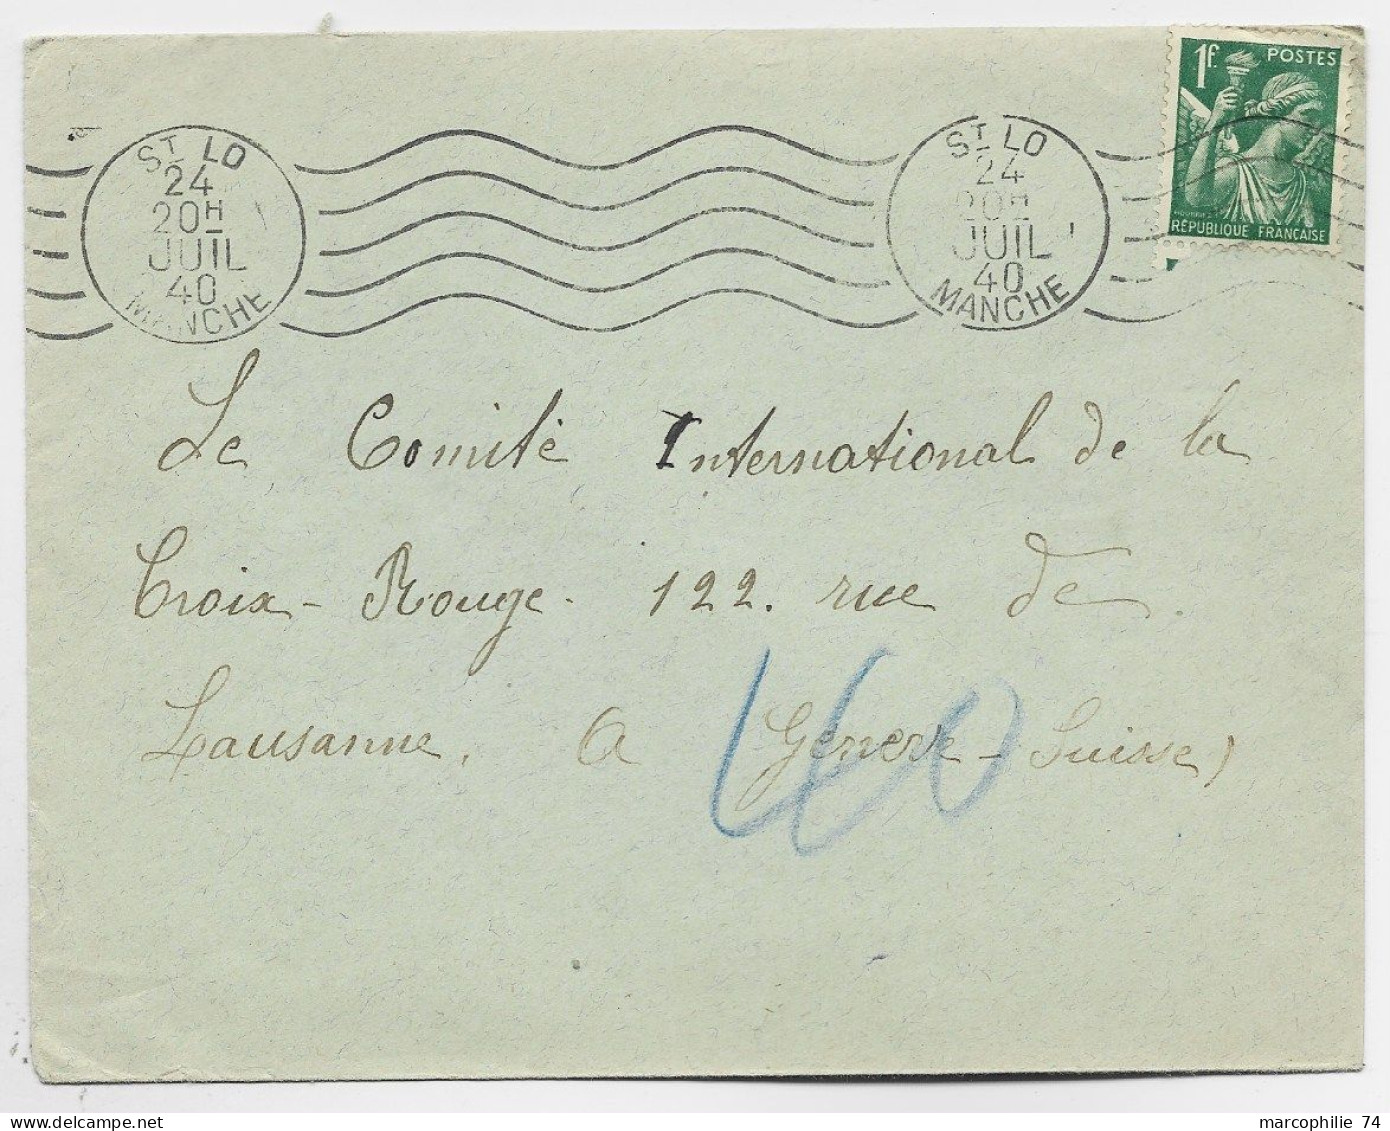 1F. POSTES
RÉPUBLIQUE FRANÇAISE
ST LO
24
20H
JUIL
40
MANCHE
ST LO
24
20H
JUIL
40
MANCHE
Le Comité International de la
Croix-Rouge. 122. rue de
Lausanne, a Genève-Suisse)
160
marcophilie 74
delcampe.net